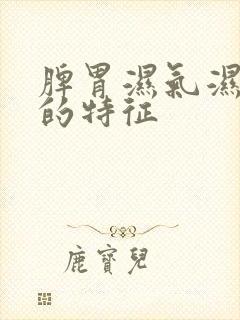 脾胃濕氣濕
的特征
鹿寶兒